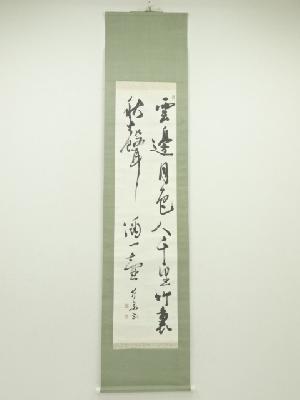 雲邊月色人千里竹裏
秋聲酒一壷